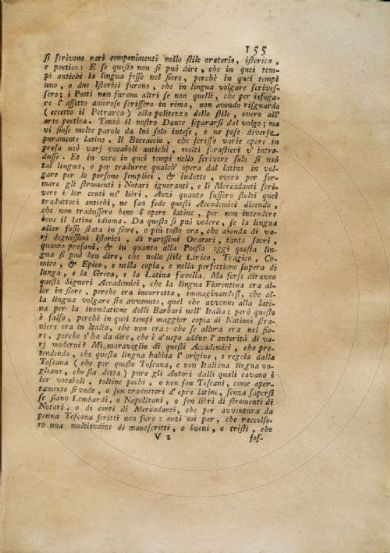 155
si scrivono varj componimenti nello stile oratorio, istorico,
e poetico: E se questo non si può dire, che in quei tem-
pi antichi la lingua fosse nel fiore, perchè in quei tempi
uno, o due Istorici furono, che in lingua volgare scrives-
sero; i Poeti non furono altri se non quelli, che per isfoga-
re l'affetto amoroso scrissero in rima, non avendo risguardo
(eccetto il Petrarca) alla politezza dello stile, overo all'
arte poetica. Tentò il nostro Dante separarsi dal volgo; ma
vi usò molte parole da lui solo intese, e ne pose diverse
puramente latine. Il Boccaccio, che scrisse varie opere in
prosa usò varj vocaboli antichi, molti forastieri v' intro-
dusse. Et in vero in quei tempi nello scrivere solo si usò
tal lingua, o per tradurre qualch' opera dal latino in vol-
gare per le persone semplici, & indotte, overo per for-
mare gli stromenti i Notari ignoranti, e li Mercadanti scri-
vere i lor conti ne' libri. Anzi quanto fussero stolti quei
traduttori antichi, ne fan fede questi Accademici dicendo,
che non tradussero bene l'opere latine, per non intendere
bene il latino idioma. Da questo si può vedere, se la lingua
allor fosse stata in fiore, o più tosto ora, che abonda di va-
rj degnissimi Istorici, di rarissimi Oratori, tanto sacri,
quanto profani, & in quanto alla Poesia oggi questa lin-
gua si può ben dire, che nello stile Lirico, Tragico, Co-
mico, & Epico, e nella copia, e nella perfettione supera di
lunga, e la Greca, e la Latina favella. Ma forse diranno
questi Signori Accademici, che la lingua Fiorentina era al-
lor in fiore, perchè era incorrotta, immaginandosi, che al-
la lingua volgare sia avvenuto, quel che avvenne alla lati-
na per la inondatione delli Barbari nell' Italia; però questo
è falso, perchè in quei tempi maggior copia di Nationi stra-
niere era in Italia, che non ora: che se allora era nel fio-
re, perchè s'ha da dire, che è d'uopo addur l'autorità di va-
rj moderni? Mi maraviglio di questi Accademici, che pre-
tendendo, che questa lingua habbia l' origine, e regola dalla
Toscana (che per questo Toscana, e non Italiana lingua vo-
gliano, che sia detta) pure gli Autori dalli quali cavano i
lor vocaboli, toltine pochi, o non son Toscani, come aper-
tamente si vede, o son traduttori d'opre latine, senza sapersi
se siano Lombardi, o Napolitani, o son libri di stromenti di
Notari, o di conti di Mercadanti, che per avventura da
penna Toscana scritti non furo: anzi mi par, che raccolse-
ro una moltitudine di manoscritti, o buoni, o tristi, che
V 2
fos-